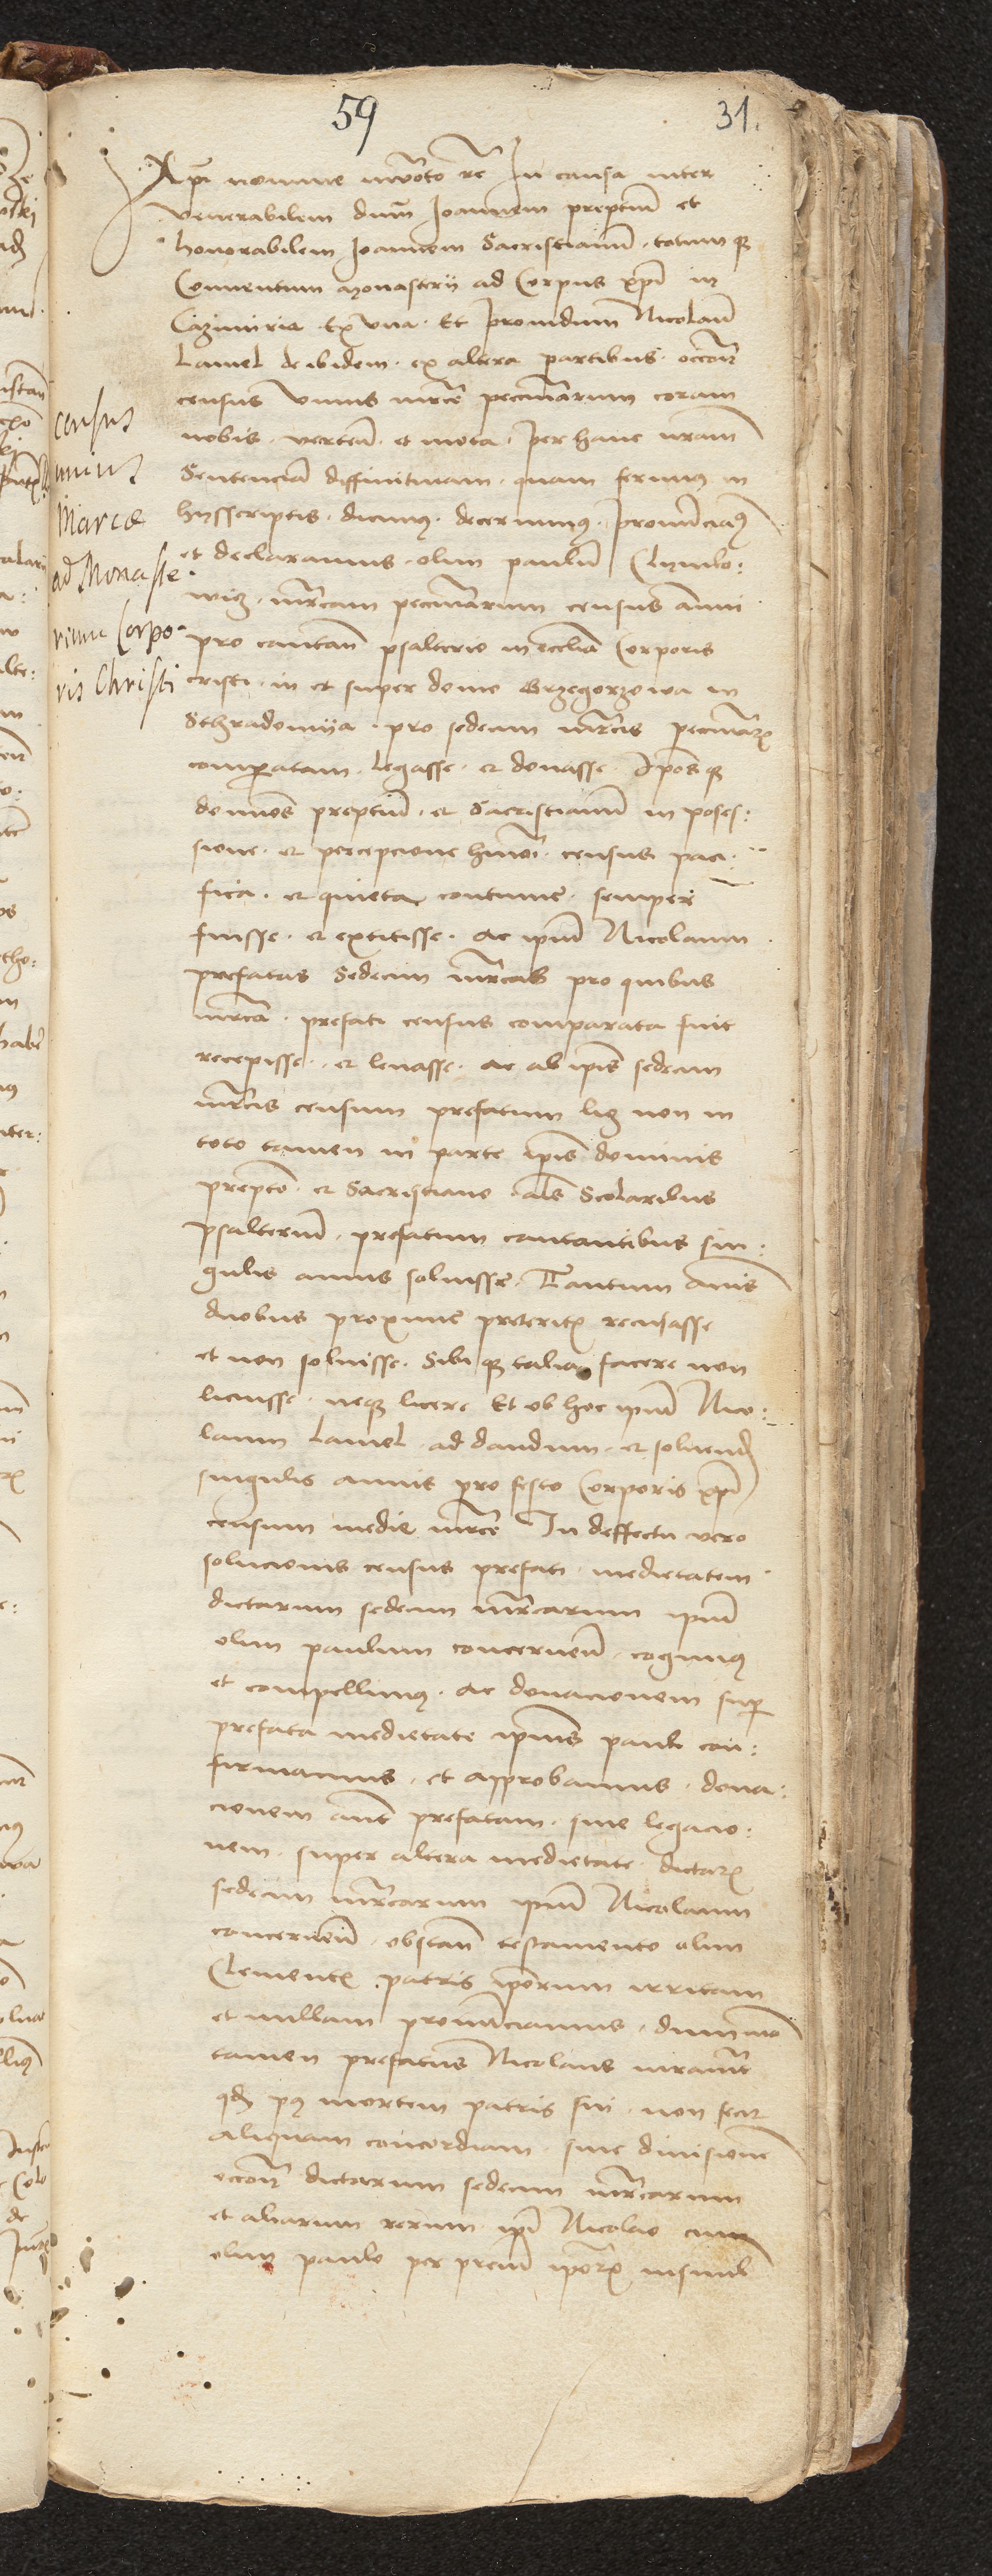 59
31.
Xpi nomine invocato rc In causa inter
venerabilem dnm Joannem preptum et
honorabilem Joannem Sacristianum totumq
Conventum Monasterij ad Corpus xpi in
Cazimiria Ex una Et providum Nicolaum
Lamel de ibidem ex altera partibus occone
census unius mrce pecuniarum coram
nobis verten et mota per hanc nram
Sentenciam diffinitivam quam ferimus in
hijsscriptis dicimus decernimus pronunciamus
et declaramus olim paulum
wicz mrcam pecuniarum census anni
pro cantan psalterio in ecclia Corporis
cristi in et super domo Grzegorzowa in
Sthradomija pro sedecim mrcis pecuniarum
comparatam legasse et donasse Iposq
dominos preptum et Sacristianum in poses:
sione et percepcione hmoi census paci
fica et quieta continue semper
fuisse et extitisse ac ipum Nicolaum
prefatas Sedecim mrcas pro quibus
mrca prefati census comparata fuit
recepisse et levasse ac ab ipis sedecim
mrcis censum prefatum licz non in
toto tamen in parte ipis dominis
prepto et Sacristiano als Scolaribus
psalterium prefatum cantantibus sin:
gulis annis solvisse Tantum annis
duobus proxime preteritis recusasse
et non solvisse Sibiq talia facere non
licuisse neq licere Et ob hoc ipum Nico:
laum Lamel ad dandum et solvend
singulis annis pro festo Corporis xpi
censum medie mrce In deffectu vero
solucionis census prefati medietatem
dictarum sedecim mrcarum ipum
olim paulum concernen cogimus
et compellimus ac donacionem super
prefata medietate ipius pauli con:
firmamus et approbamus dona:
cionem aut prefatam sive legacio:
nem super altera medietate dictarum
sedecim mrcarum ipum Nicolaum
concernen obstan testamento olim
Clementis patris iporum irritam
et nullam pronunciamus dummodo
tamen prefatus Nicolaus iuraverit
qd post mortem patris sui non fecit
aliquam concordiam sive divisionem
occone dictarum sedecim mrcarum
et aliarum rerum ipi Nicolao cum
olim paulo per prem iporum insimul
census
unius
Marcæ
ad Monaste
rium Corpo
ris Christi